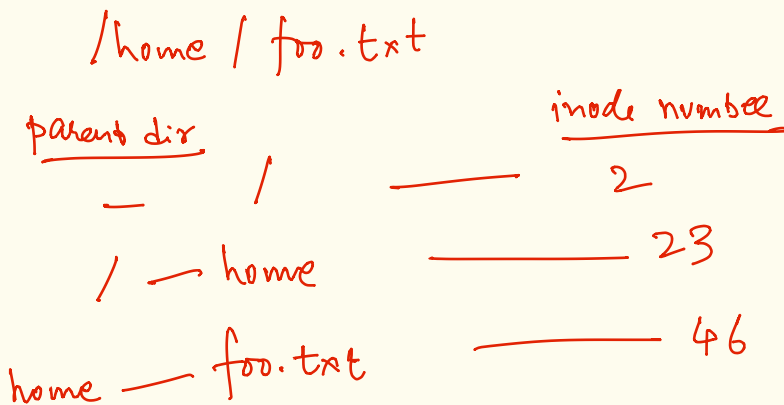 /home / foo.txt
parent dir inode number
— / — 2
/ — home — 23
home — foo.txt — 46